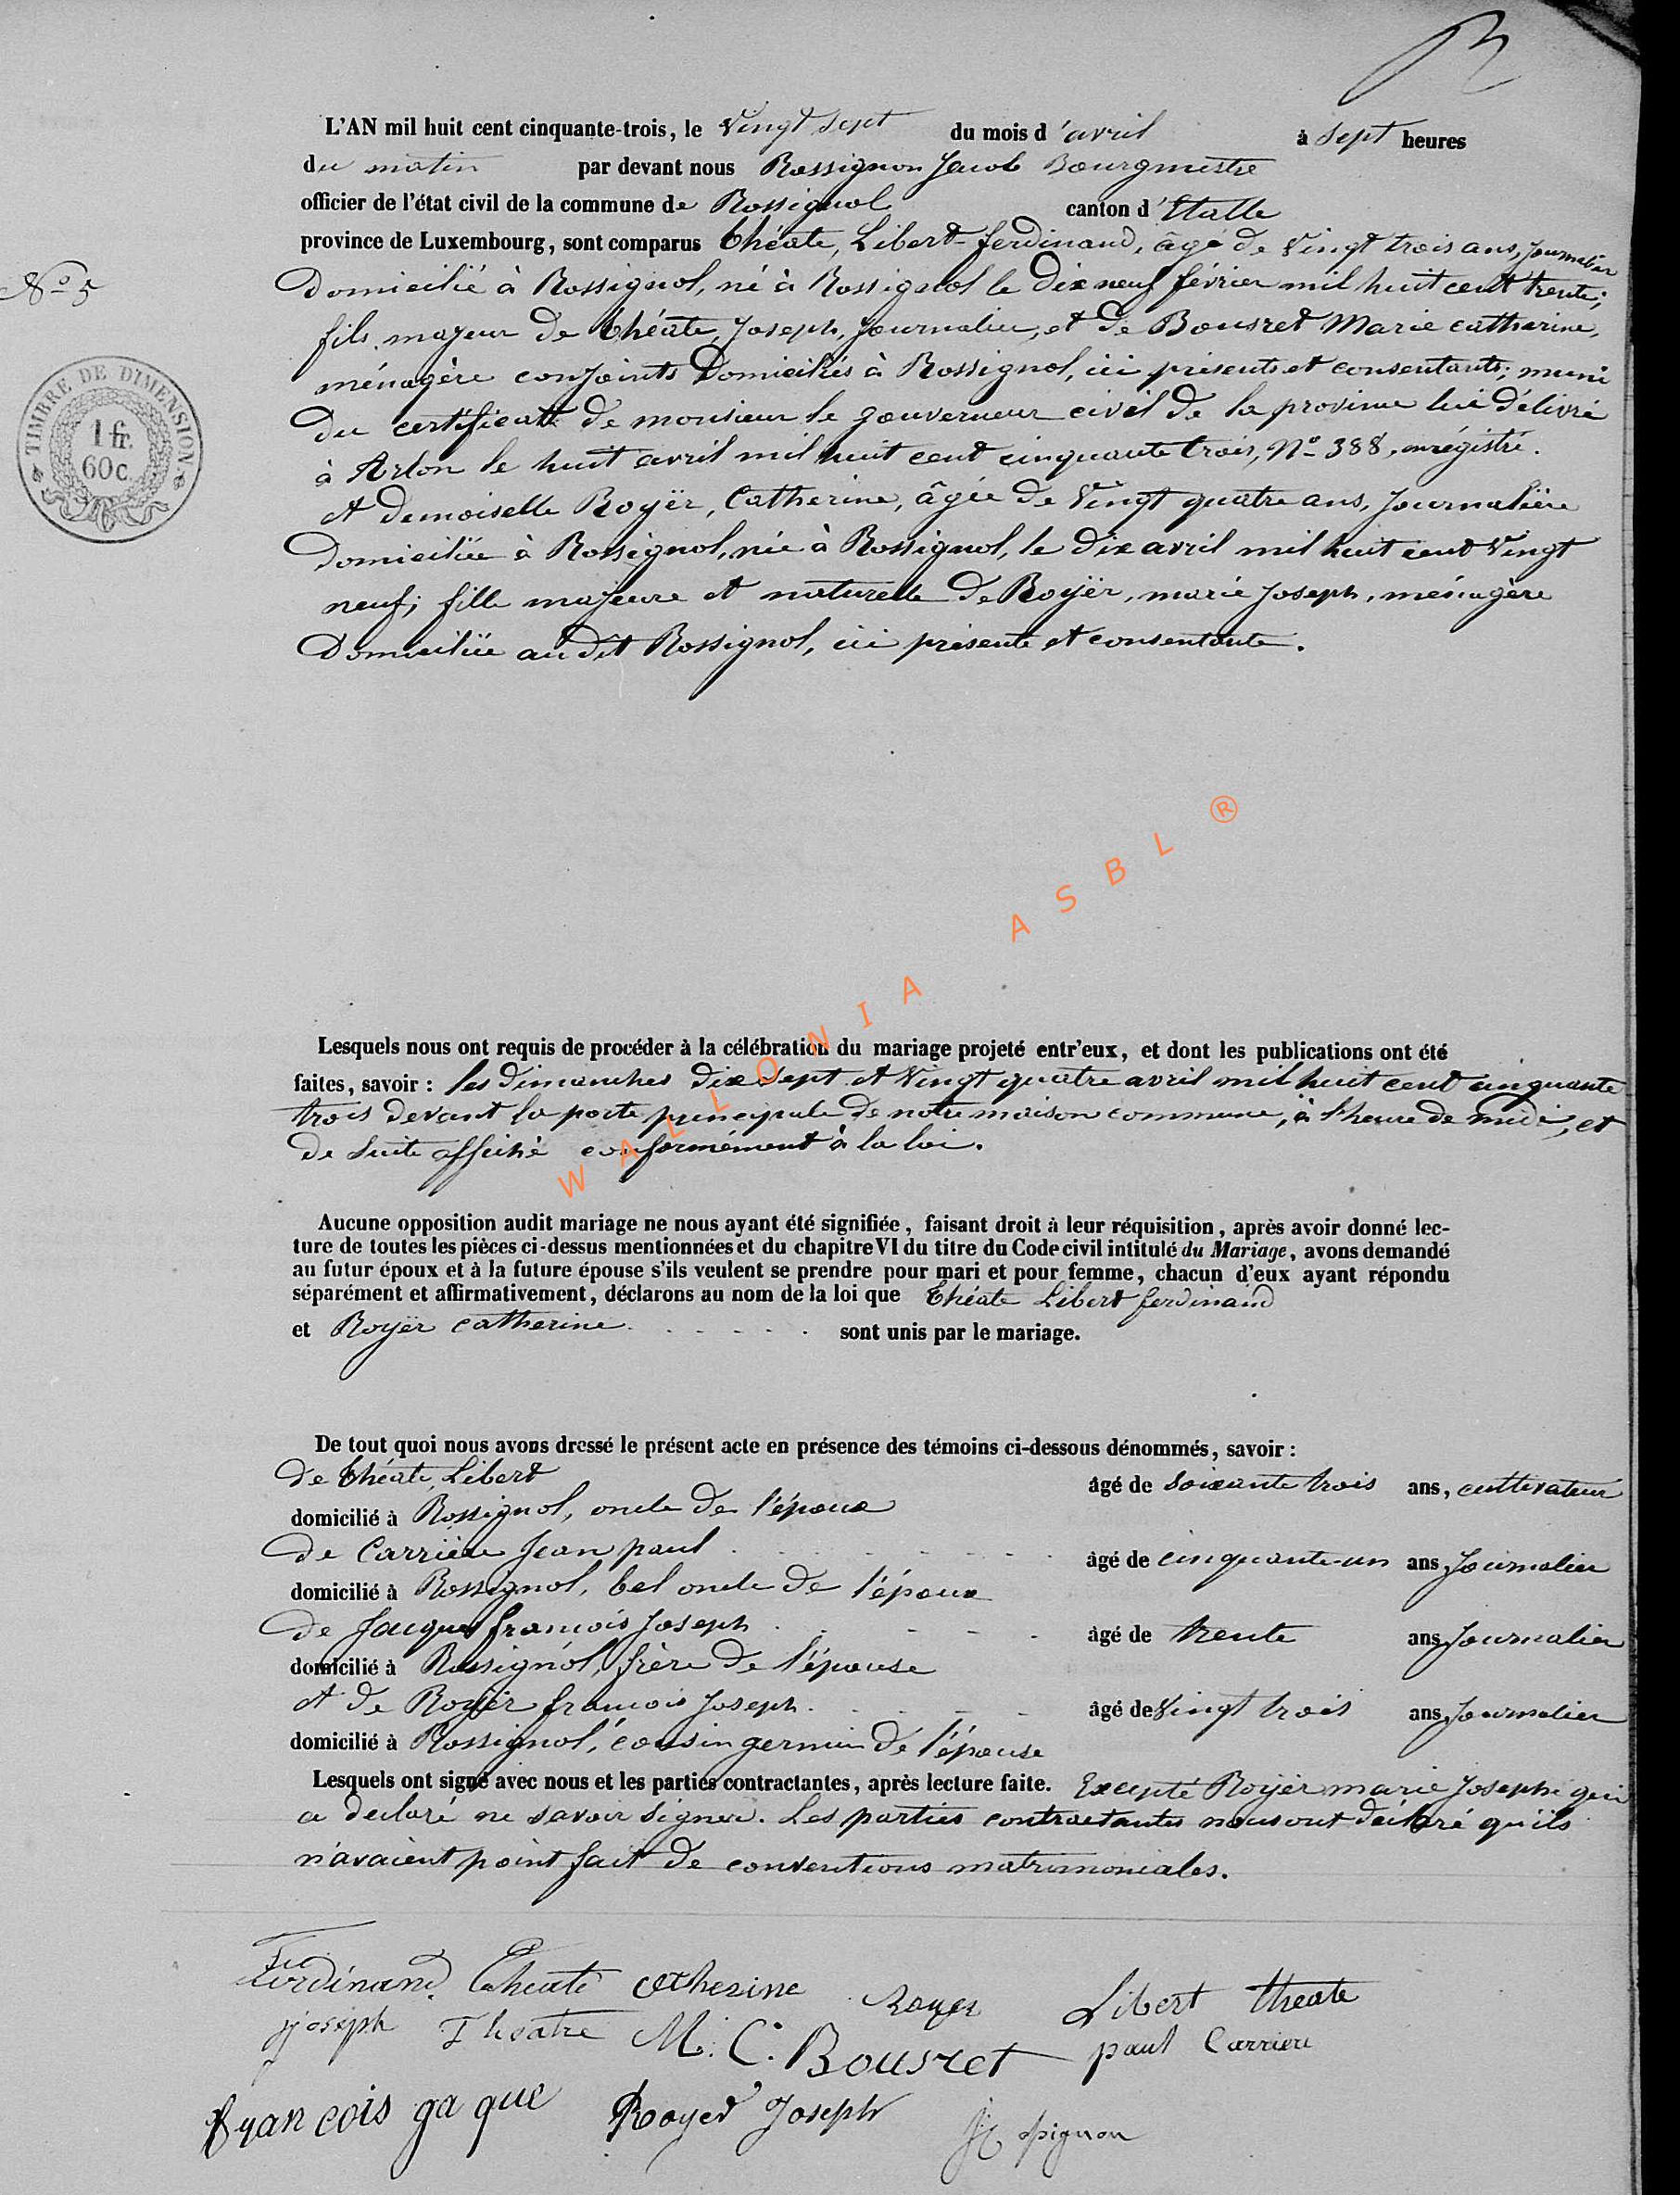 L'AN mil huit cent cinquante-trois, le Vingt sept du mois d'avril à sept heures
du matin par devant nous Rossignon Jacob Bourgmestre
officier de l'état civil de la commune de Rossignol canton d'Etalle
province de Luxembourg, sont comparus théate, Libert-ferdinand, âgé de Vingt trois ans, Journalier
N° 5
Domicilié à Rossignol, né à Rossignol le Dix neuf février mil huit cent trente;
fils majeur de théate, Joseph, Journalier, et de Bousret Marie catherine,
ménagère conjoints Domiciliés à Rossignol, ici présents et consentants; muni
Du certificatt de monsieur le gouverneur civil de la province lui délivré
à Arlon le huit avril mil huit cent cinquante trois, N° 388, enrégistré.
et demoiselle Royër, Catherine, âgée de Vingt quatre ans, Journalière
Domiciliée à Rossignol, née à Rossignol, le Dix avril mil huit cent Vingt
neuf; fille majeure et naturelle de Royër, marie Joseph, ménagère
Domiciliée au dit Rossignol, ici présente et consentante.
TIMBRE DE DIMENSION.
1 fr.
60c
Lesquels nous ont requis de procéder à la célébration du mariage projeté entr'eux, et dont les publications ont été
faites, savoir : les Dimanches dix sept et Vingt quatre avril mil huit cent cinquante
trois devant la porte principale de notre maison commune, à l'heure de midi, et
de suite affiché conformément à la loi.
WALLONIA ASBL ®
Aucune opposition audit mariage ne nous ayant été signifiée, faisant droit à leur réquisition, après avoir donné lec-
ture de toutes les pièces ci-dessus mentionnées et du chapitre VI du titre du Code civil intitulé du Mariage, avons demandé
au futur époux et à la future épouse s'ils veulent se prendre pour mari et pour femme, chacun d'eux ayant répondu
séparément et affirmativement, déclarons au nom de la loi que théate Libert ferdinand
et Royër catherine. - - - - - sont unis par le mariage.
De tout quoi nous avons dressé le présent acte en présence des témoins ci-dessous dénommés, savoir :
De théate, Libert âgé de soixante trois ans, cultivateur
domicilié à Rossignol, oncle de l'époux
De Carrière Jean paul âgé de cinquante-un ans, Journalier
domicilié à Rossignol, bel oncle de l'époux
de Jacques françois Joseph âgé de trente ans, Journalier
domicilié à Rossignol, frère de l'épouse
et de Royër françois Joseph. âgé de Vingt trois ans, Journalier
domicilié à Rossignol, cousin germain de l'épouse
Lesquels ont signé avec nous et les parties contractantes, après lecture faite. Excepté Royër marie Joseph qui
a declaré ne savoir signer. Les parties contractantes nous ont déclaré qu'ils
n'avaient point fait de conventions matrimoniales.
Ferdinand théate catherine royer Libert theate
joseph Theatre M. C. Bousret paul Carriere
françois gaque Royer Joseph